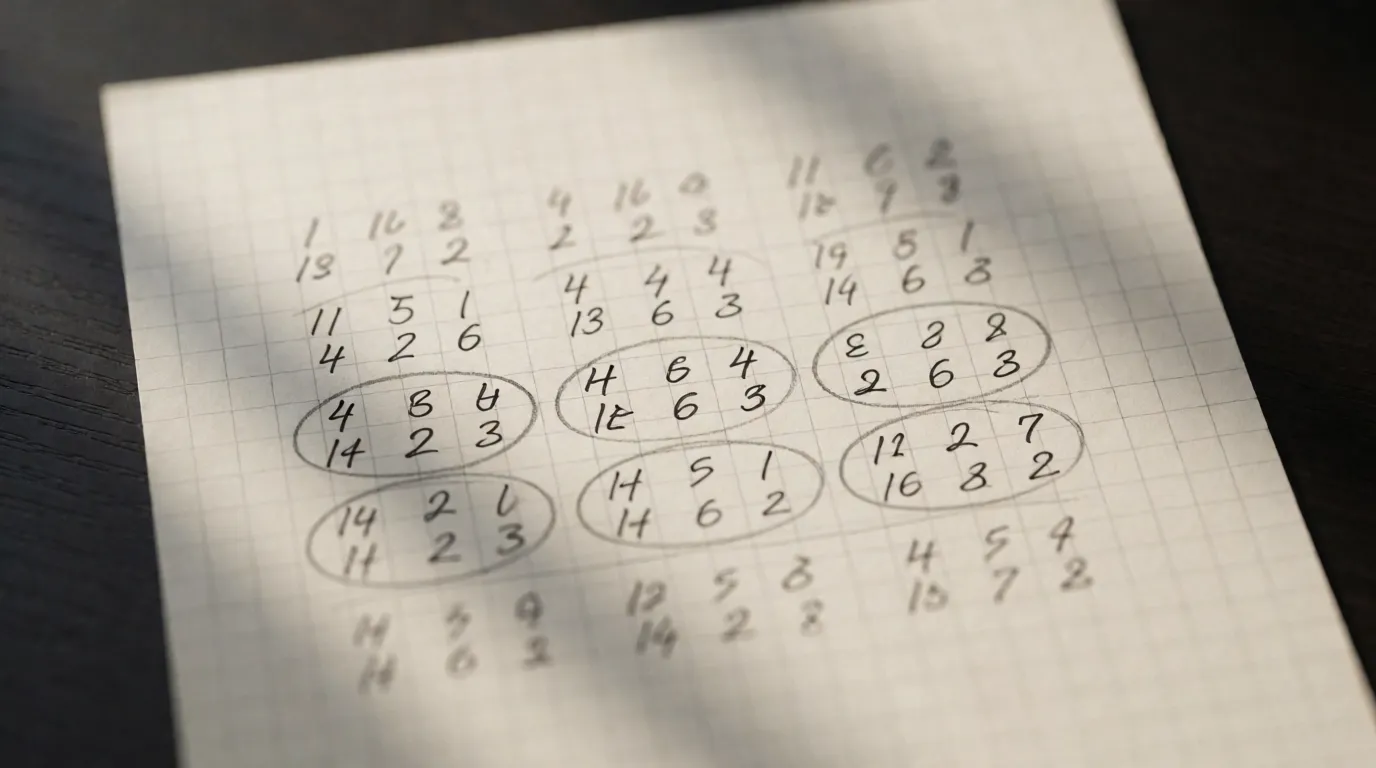 1 16 8 4 16 0 11 6 2
13 7 2 2 2 3 9 3
11 5 1 4 4 4 19 5 1
4 2 6 13 6 3 14 6 3
4 8 4 6 4 3 8
14 2 3 6 3 2 6 3
14 2 14 5 1 12 2 7
14 2 3 14 6 2 16 8 2
5 9 12 5 8 4 5 9
6 2 14 2 8 13 7 2